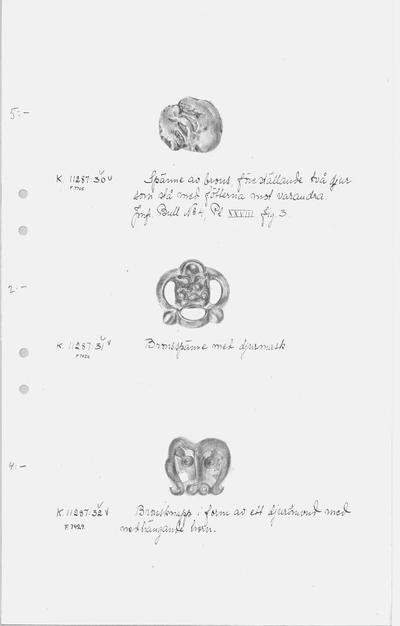 5:-
K. 11287:30 V Spänne av brons, föreställande två djur
F. 7105 som stå med fötterna mot varandra.
Jmf. Bull No 4, Pl XXVIII fig 3.
2:-
K. 11287:31 V Bronsspänne med djurmask
F 7426
4:-
K. 11287:32 V Bronsknapp i form av ett djurhuvud med
F. 7429. nedhängande horn.